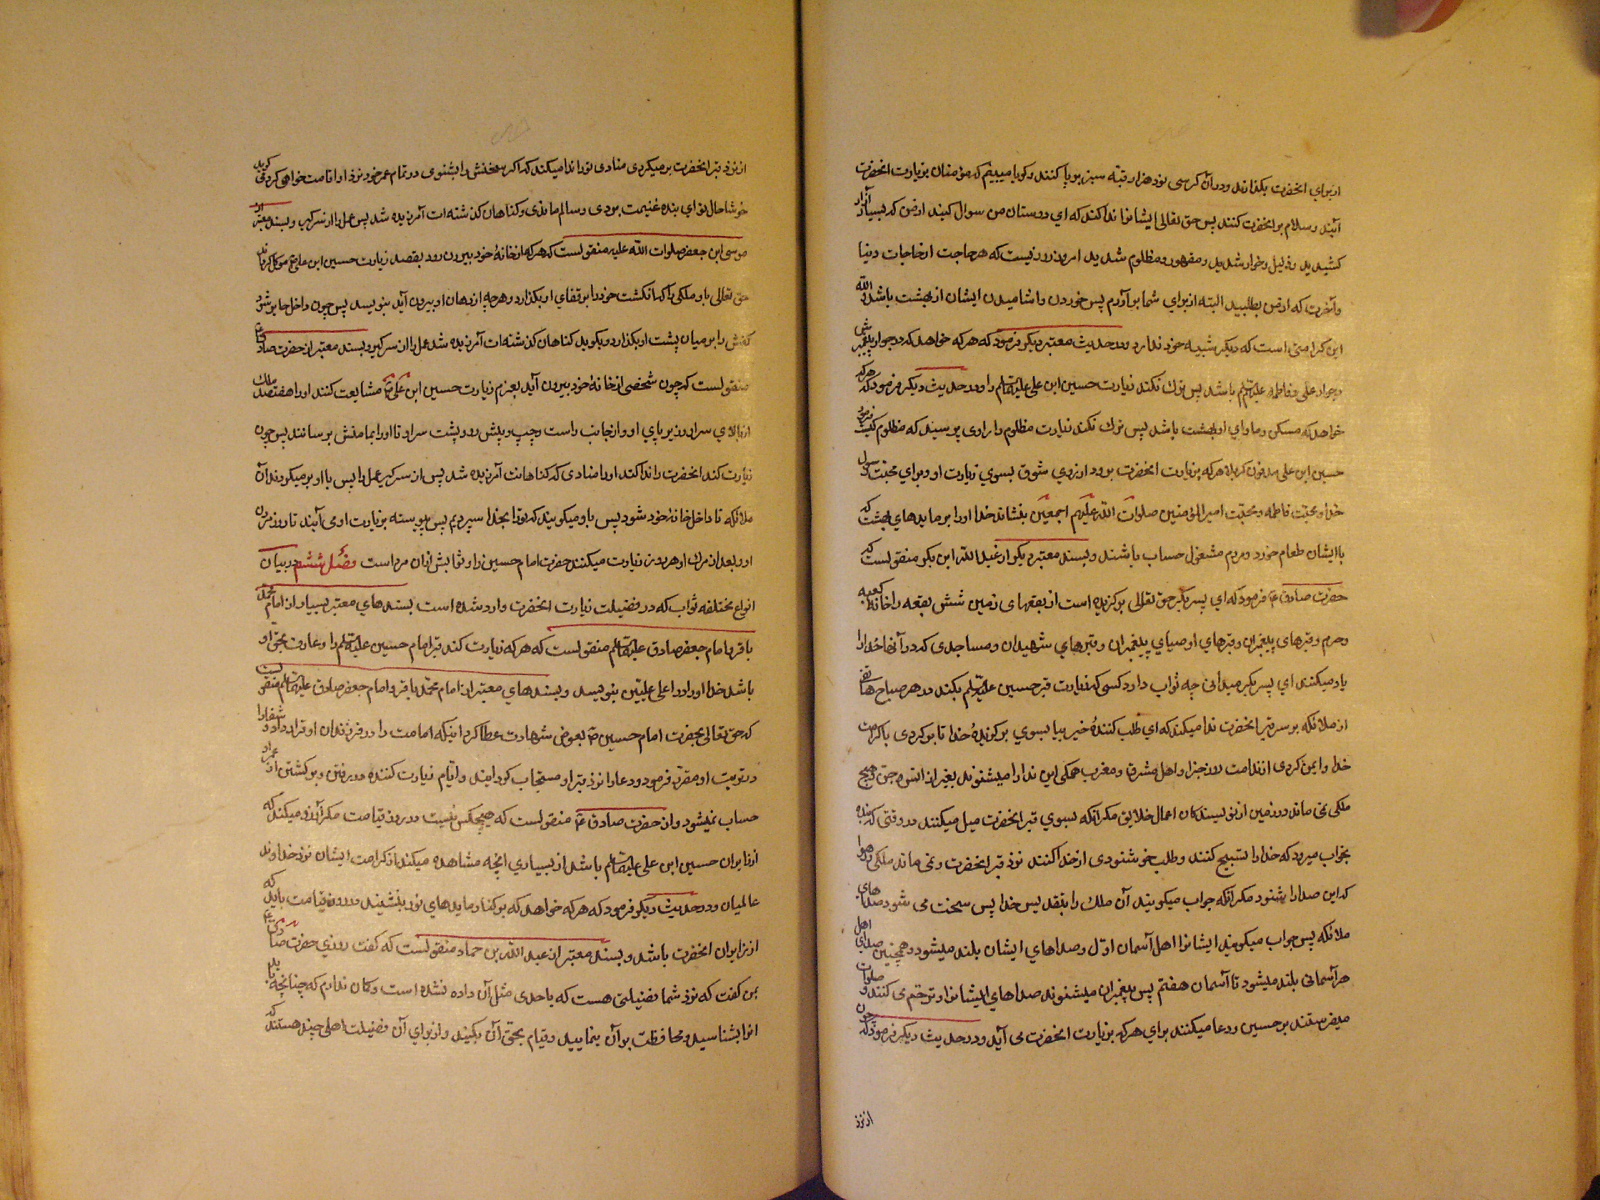 از برای آنحضرت بگذارند و در آن کرسی نود هزار قبّه سبز برپا کنند و گویا میبینم که مؤمنان بزیارت آنحضرت
آیند و سلام بر آنحضرت کنند پس حق تعالی ایشانرا ندا کند که ای دوستان من سؤال کنید از من که بسیار آزار
کشیدید و ذلیل و خوار شدید و مقهور و مظلوم شدید امروز روزیست که هر حاجت از حاجات دنیا
و آخرت که از من بطلبید البته از برای شما برآورم پس خوردن و آشامیدن ایشان از بهشت باشد و الله
این کرامتی است که دیگر شبیه خود ندارد و در حدیث معتبر دیگر فرمود که هر که خواهد که در جوار پیغمبر شما
و جوار علی و فاطمه علیهم السلم باشد پس ترک نکند زیارت حسین ابن علی علیهما السلم را و در حدیث دیگر فرمود که هر که
خواهد که مسکن و ماوای او بهشت باشد پس ترک نکند زیارت مظلوم را راوی پرسید که مظلوم کیست فرمود
حسین ابن علی مدفون کربلا هر که بزیارت آنحضرت برود از روی شوق بسوی زیارت او و برای محبّت رسول
خدا و محبّت فاطمه و محبّت امیر المؤمنین صلوات الله علیهم اجمعین بنشاند خدا او را بر مایدهای بهشت که
با ایشان طعام خورد و مردم مشغول حساب باشند و بسند معتبر دیگر از عبد الله ابن بکر منقولست که
حضرت صادق ع فرمود که ای پسر بکر حق تعالی برگزیده است از بقعهای زمین شش بقعه را خانه کعبه
و حرم و قبرهای پیغمبران و قبرهای اوصیای پیغمبران و قبرهای شهیدان و مساجدی که در آنها خدا را
یاد میکنند ای پسر بکر میدانی چه ثواب دارد کسی که زیارت قبر حسین علیه السلم بکند در هر صباح هاتفی
از ملائکه بر سر قبر آنحضرت ندا میکند که ای طلب کننده خیر بیا بسوی برگزیده خدا تا برگردی با کرامت
خدا و ایمن گردی از ندامت روز جزا و اهل مشرق و مغرب همگی این ندا را میشنوند بغیر از انس و جن و هیچ
ملکی نمی ماند در زمین از نویسندگان اعمال خلایق مگر آنکه بسوی قبر آنحضرت میل میکنند در وقتی که بنده
بخواب میرود که خدا را تسبیح کنند و طلب خوشنودی از خدا کنند نزد قبر آنحضرت و نمی ماند ملکی در هوا
که این صدا را بشنود مگر آنکه جواب میگویند آن ملک را بتقدیس خدا پس سخت می شود صداهای
ملائکه پس جواب میگویند ایشانرا اهل آسمان اوّل و صداهای ایشان بلند میشود و همچنین صدای اهل
هر آسمانی بلند میشود تا آسمان هفتم پس پیغمبران میشنوند صداهای ایشانرا و ترحّم می کنند و صلوات
میفرستند بر حسین و دعا میکنند برای هر که بزیارت آنحضرت می آید و در حدیث دیگر فرمود که چون
از نزد
از نزد قبر آنحضرت برمیگردی منادی تو را ندا میکند که اگر سخنش را بشنوی در تمام عمر خود نزد او اقامت خواهی کرد میگوید
خوشا حال تو ای بنده غنیمت بردی و سالم ماندی و گناهان گذشته ات آمرزیده شد پس عمل را از سر گیر و بسند معتبر از
موسی ابن جعفر صلوات الله علیه منقولست که هر که از خانهٔ خود بیرون رود بقصد زیارت حسین ابن علی ع موکل گرداند
حق تعالی باو ملکی را که انگشت خود را بر قفای او بگذارد و هر چه از دهان او بیرون آید بنویسد پس چون داخل حایر شود
کفش را بر میان پشت او بگذارد و بگوید گناهان گذشته ات آمرزیده شد عمل را از سر گیر و بسند معتبر از حضرت صادق ع
منقولست که چون شخصی از خانهٔ خود بیرون آید بعزم زیارت حسین ابن علی ع مشایعت کنند او را هفتصد ملک
از بالای سر او و زیر پای او و از جانب راست و چپ و پیش رو و پشت سر او تا او را بمامنش برسانند پس چون
زیارت کند آنحضرت را ندا کند او را منادی که گناهانت آمرزیده شد پس از سر گیر عمل را پس با او برمیگردند آن
ملائکه تا داخل خانهٔ خود شود پس باو میگویند که ترا بخدا سپردیم پس پیوسته بزیارت او می آیند تا روز مردن
او و بعد از مرگ او هر روز زیارت میکنند حضرت امام حسین را و ثوابش از آن مرد است فصل ششم در بیان
انواع مختلفه ثواب که در فضیلت زیارت آنحضرت وارد شده است بسندهای معتبر بسیار از امام محمّد
باقر و امام جعفر صادق علیهما السلم منقولست که هر که زیارت کند قبر امام حسین علیه السلم را و عارف بحق او
باشد خدا او را در اعلی علیّین بنویسد و بسندهای معتبر از امام محمّد باقر و امام جعفر صادق علیهما السلم منقولست
که حق تعالی بحضرت امام حسین ع بعوض شهادت عطا کرد اینکه امامت را در فرزندان او قرار داد و شفا را
در تربت او مقرّر فرمود و دعا را نزد قبر او مستجاب گردانید و ایّام زیارت کننده در رفتن و برگشتن از عمر او
حساب نمیشود و از حضرت صادق ع منقولست که هیچکس نیست در روز قیامت مگر آرزو میکند که
از زایران حسین ابن علی علیهما السلم باشد از بسیاری آنچه مشاهده میکند از کرامت ایشان نزد خداوند
عالمیان و در حدیث دیگر فرمود که هر که خواهد که بر کنار مایدهای نور بنشیند در روز قیامت باید که
از زایران آنحضرت باشد و بسند معتبر از عبد الله بن حماد منقولست که گفت روزی حضرت صادق ع
بمن گفت که نزد شما فضیلتی هست که باحدی مثل آن داده نشده است و گمان ندارم که چنانچه باید
آنرا بشناسید و محافظت بر آن بنمایید و قیام بحق آن بکنید و از برای آن فضیلت اهلی چند هستند که